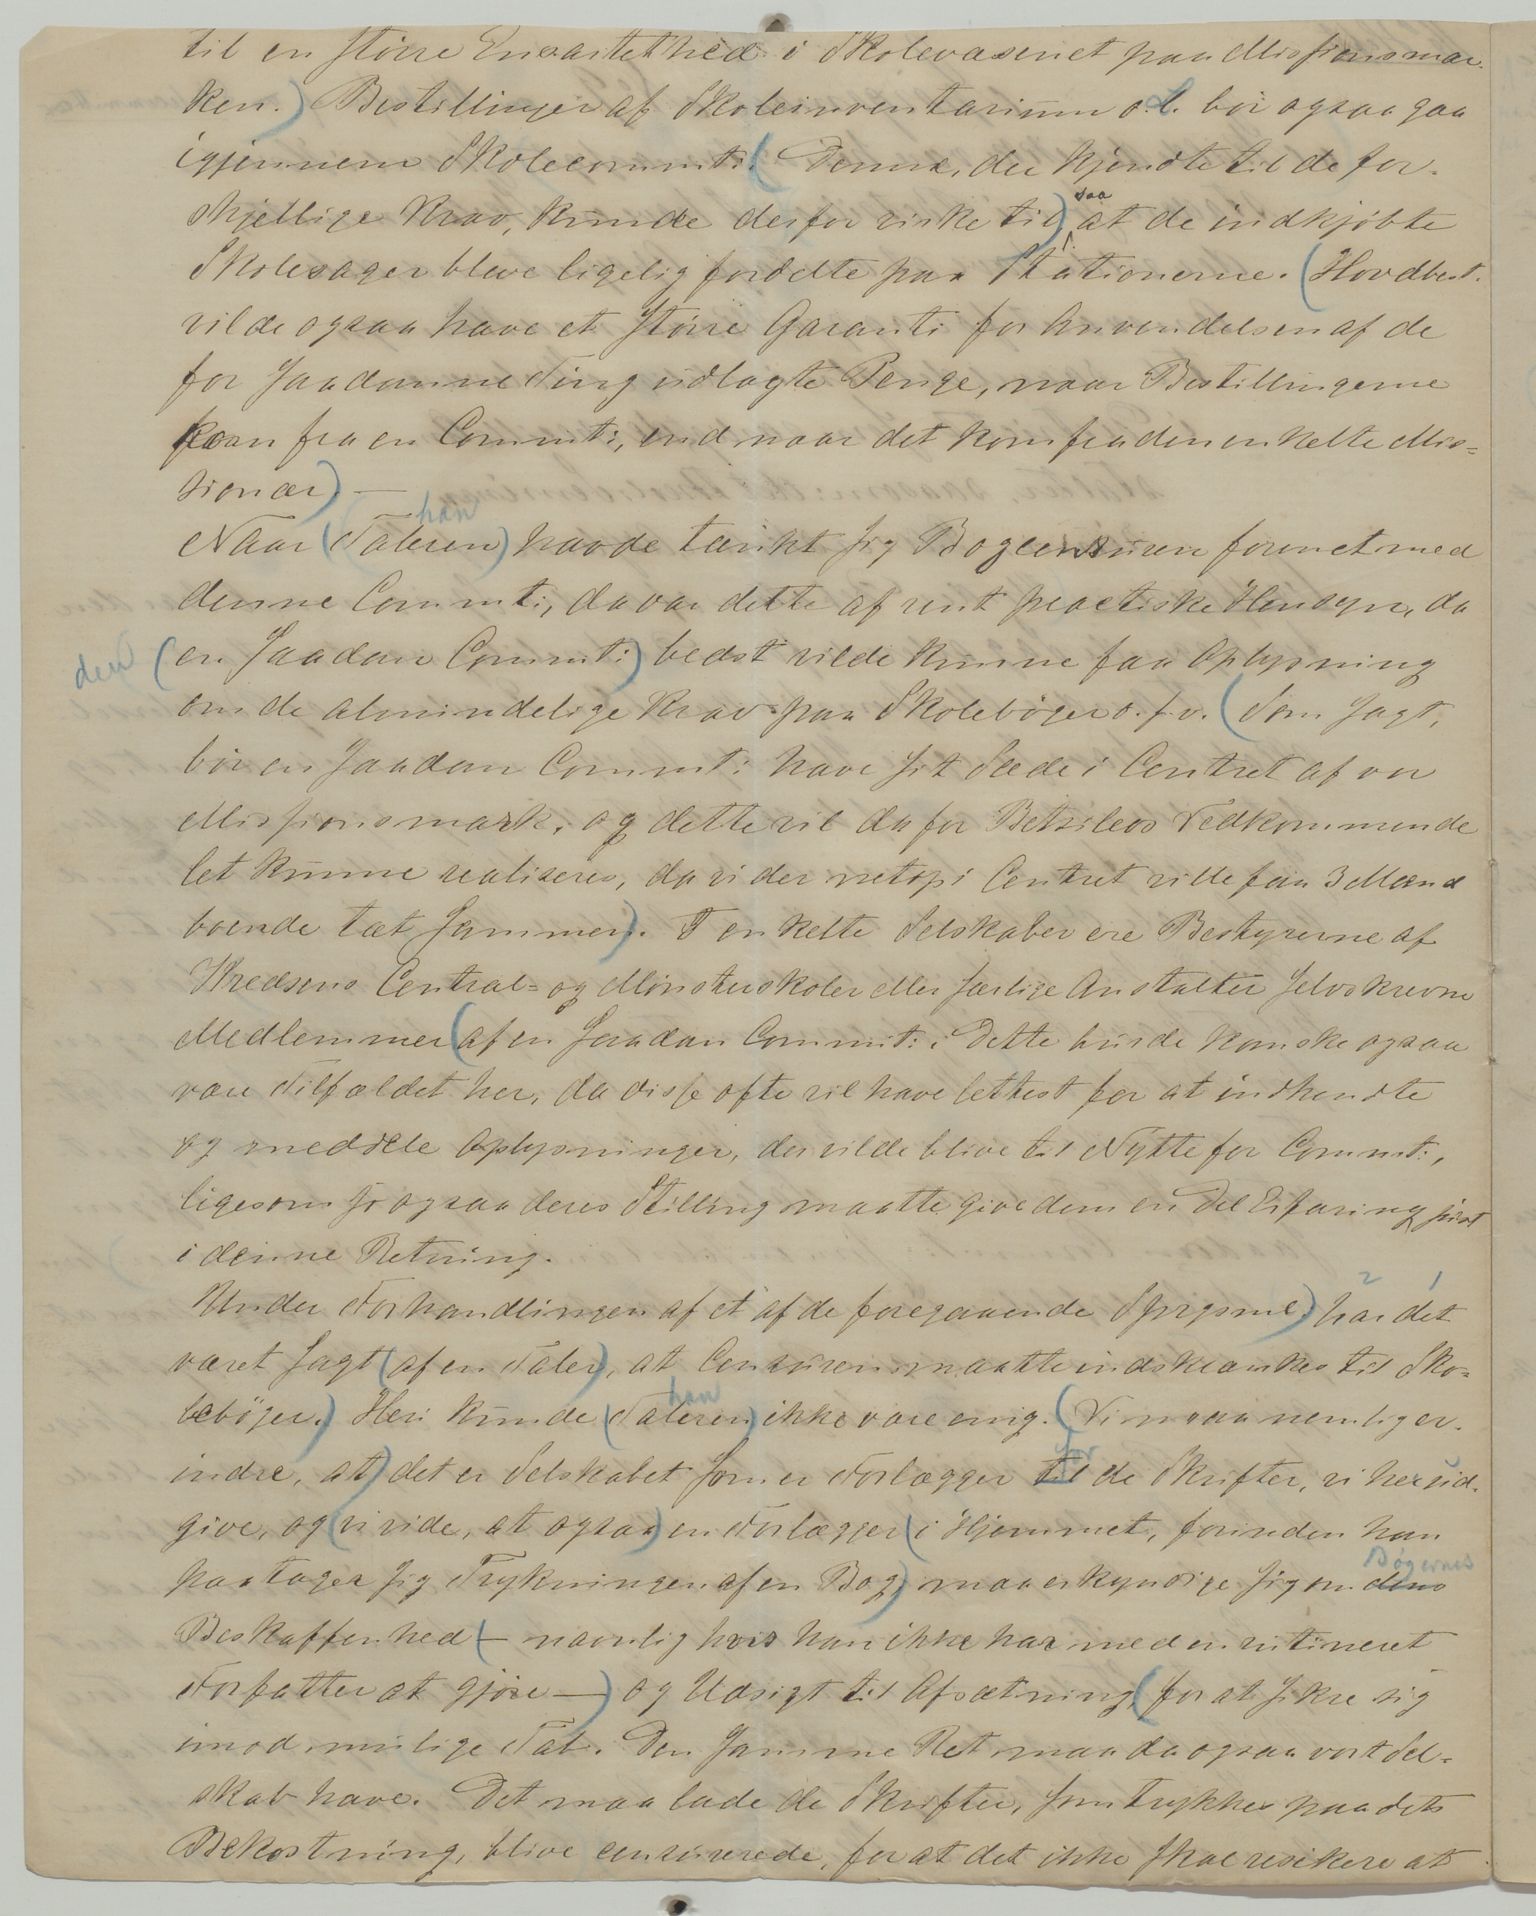 til en større Ensartethed i Skolevæsenet paa Missionsmar-
ken.) Bestillinger af Skoleinventarium o.l. bør ogsaa gaa
igjennem Skolecommt:. (Denne, der kjendte til de for-
skjellige Krav, kunde derfor virke til) saa at de indkjøbte
Skolesager bleve ligelig fordelte paa Stationerne. (Hovdbest.
vilde ogsaa have et større Garanti for Anvendelsen af de
for saadanne Ting udlagte Penge, naar Bestillingerne
kom fra en Commt:, end naar det kom fra den enkelte Mis-
sionær) —
Naar (Taleren) han havde tænkt sig Bogcensuren forenet med
denne Commt:, da var dette af rent practiske Hensyn, da
den (en saadan Commt:) bedst vilde kunne faa Oplysning
om de almindelige Krav paa Skolebøger o.s.v. (Som sagt,
bør en saadan Commt: have sit Sæde i Centret af vor
Missionsmark, og dette vil da for Betsileos Vedkommende
let kunne realiseres, da vi der netop i Centret ville faa 3 Mænd
boende tæt sammen). I enkelte Selskaber ere Bestyrerne af
Kredsens Central- og Mønsterskoler eller særlige Anstalter selvskrevne
Medlemmer (af en saadan Commt:. Dette burde kanske ogsaa
være Tilfældet her, da disse ofte vil have lettest for at indhente
og meddele Oplysninger, der vilde blive til Nytte for Commt:,
ligesom jo ogsaa deres Stilling maatte give dem en Del Erfaring just
i denne Retning.
Under Forhandlingen af et af de foregaaende Spgsml.) har 2 det 1
været sagt (af en Taler), at Censuren maatte indskrænkes til Sko-
lebøger.) Heri kunde (Taleren) han ikke være enig. (Vi maa nemlig er-
indre, at) det er Selskabet som er Forlægger til for de Skrifter, vi her ud-
give, og (vi vide, at ogsaa) en Forlægger (i Hjemmet, forinden han
paatager sig Trykningen af en Bog) maa erkyndige sig om dens Bøgernes
Beskaffenhed (— navnlig hvis han ikke har med en rutineret
Forfatter at gjøre —) og Udsigt til Afsætning (for at sikre sig
imod mulige Tab. Den samme Ret maa da ogsaa vort Sel-
skab have. Det maa lade de Skrifter, som trykkes paa dets
Bekostning, blive censurerede, for at det ikke skal resikere at